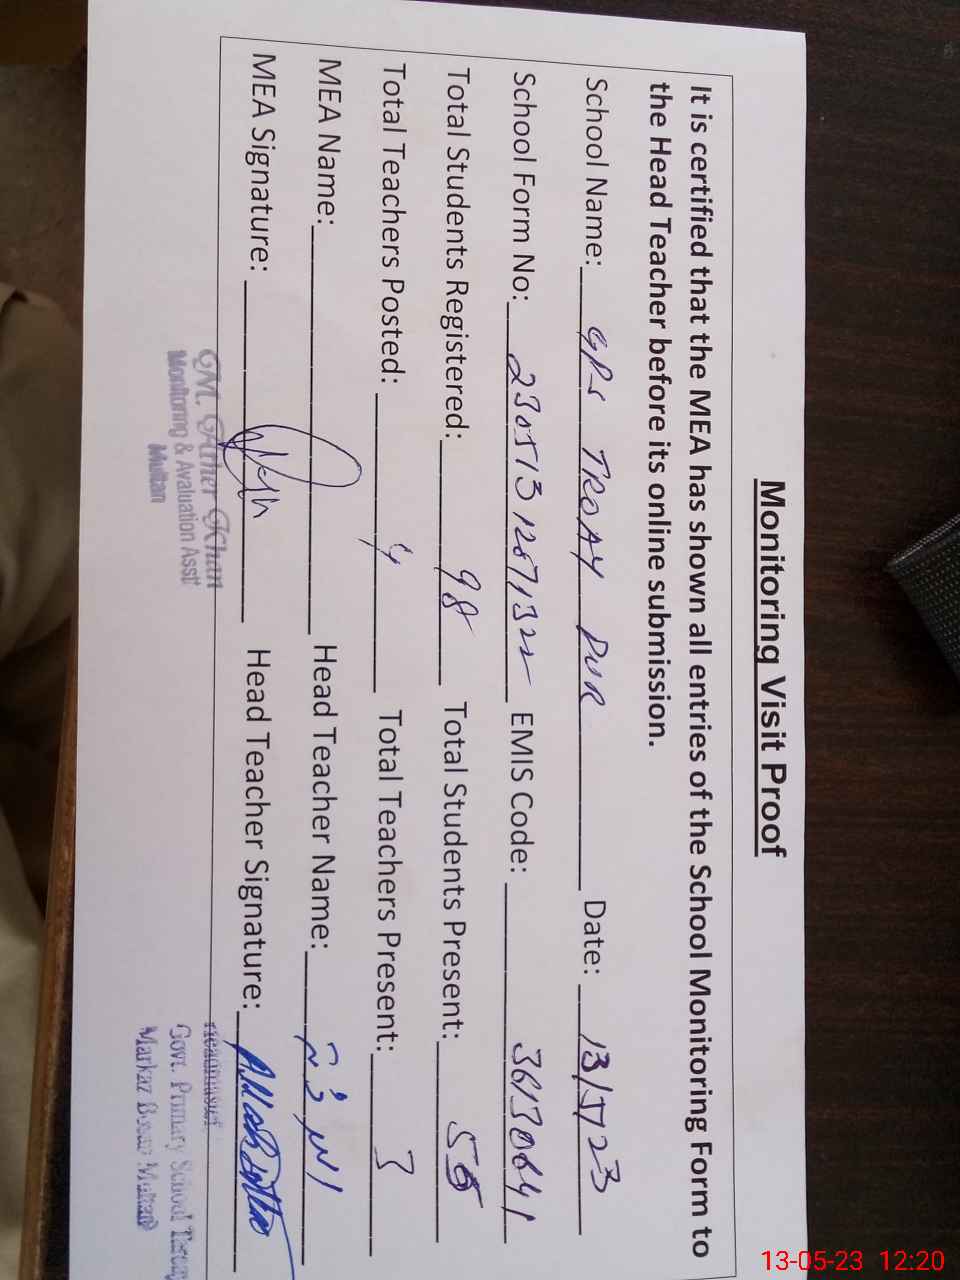 Monitoring Visit Proof
It is certified that the MEA has shown all entries of the School Monitoring Form to
the Head Teacher before its online submission.
School Name: GPS TROAY PUR Date: 13/5/23
School Form No: EMIS Code: 36130641
Total Students Registered: 98 Total Students Present:
Total Teachers Posted: 4 Total Teachers Present: 3
MEA Name: Head Teacher Name:
MEA Signature: Head Teacher Signature:
M. Ather Khan
Monitoring & Avaluation Asst
Multan
Govt. Primary School
Markaz Multan
13-05-23 12:20